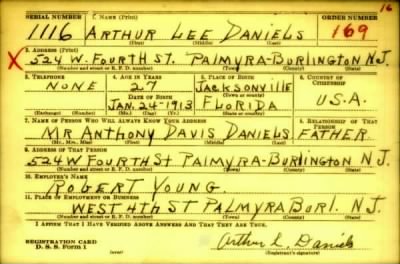 16
SERIAL NUMBER 1. NAME (Print) ORDER NUMBER
1116 ARTHUR LEE DANIELS 169
(First) (Middle) (Last)
X 2. ADDRESS (Print)
524 W. FOURTH ST. PALMYRA-BURLINGTON N.J.
(Number and street or R. F. D. number) (Town) (County) (State)
3. TELEPHONE 4. AGE IN YEARS 5. PLACE OF BIRTH 6. COUNTRY OF CITIZENSHIP
NONE 27 JACKSONVILLE
DATE OF BIRTH (Town or county)
JAN.-24-1913 FLORIDA U.S.A.
(Exchange) (Number) (Mo.) (Day) (Yr.) (State or country)
7. NAME OF PERSON WHO WILL ALWAYS KNOW YOUR ADDRESS 8. RELATIONSHIP OF THAT PERSON
MR ANTHONY DAVIS DANIELS FATHER
(Mr., Mrs., Miss) (First) (Middle) (Last)
9. ADDRESS OF THAT PERSON
524 W FOURTH ST PALMYRA-BURLINGTON N J
(Number and street or R. F. D. number) (Town) (County) (State)
10. EMPLOYER'S NAME
ROBERT YOUNG.
11. PLACE OF EMPLOYMENT OR BUSINESS
WEST 4TH ST PALMYRA BURL. N.J.
(Number and street or R. F. D. number) (Town) (County) (State)
I AFFIRM THAT I HAVE VERIFIED ABOVE ANSWERS AND THAT THEY ARE TRUE.
REGISTRATION CARD
D. S. S. Form 1 (over) Arthur L. Daniels
(Registrant's signature)